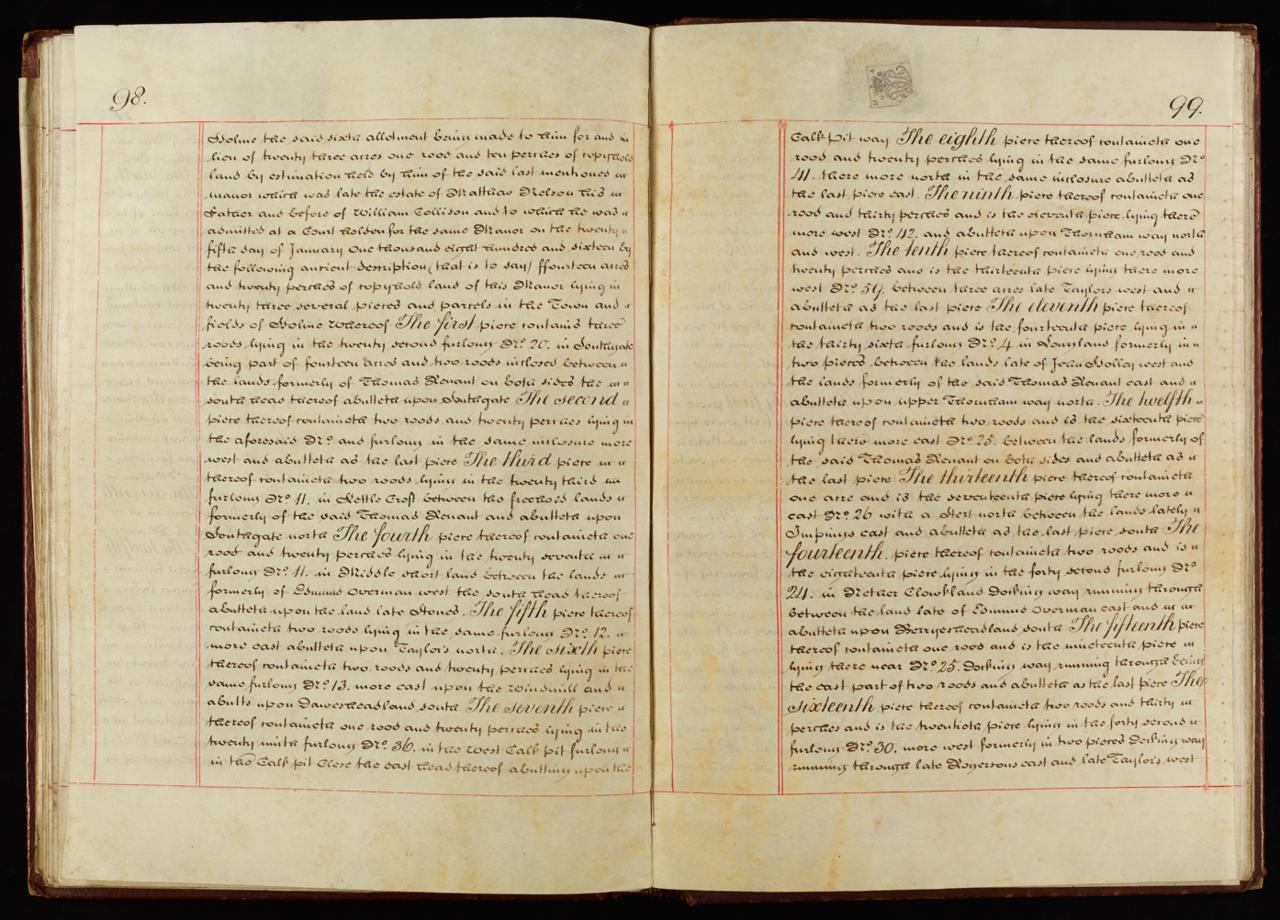 98.
Holme the said sixth allotment being made to him for and in
lieu of twenty three acres one rood and ten perches of copyhold
land by estimation held by him of the said last mentioned
manor which was late the estate of Matthew Nelson his
Father and before of William Collison and to which he was
admitted at a Court holden for the same Manor on the twenty
fifth day of January One thousand eight hundred and sixteen by
the following antient description (that is to say) ffourteen acres
and twenty perches of copyhold land of this Manor lying in
twenty three several pieces and parcels in the Town and
fields of Holme Whereof The first piece contains three
roods lying in the twenty second furlong No. 20. in Southgate
being part of fourteen acres and two roods inclosed between
the lands formerly of Thomas Renant on both sides the
south head thereof abutteth upon Southgate The second
piece thereof containeth two roods and twenty perches lying in
the aforesaid No. and furlong in the same inclosure more
west and abutteth as the last piece The third piece
thereof containeth two roods lying in the twenty third
furlong No. 11. in Nettle Croft between the freehold lands
formerly of the said Thomas Renant and abutteth upon
Southgate north The fourth piece thereof containeth one
rood and twenty perches lying in the twenty seventh
furlong No. 11. in Middle short land between the lands
formerly of Edmund Overman west the south head thereof
abutteth upon the land late Stones. The fifth piece thereof
containeth two roods lying in the same furlong No. 12.
more east abutteth upon Taylor's north. The sixth piece
thereof containeth two roods and twenty perches lying in the
same furlong No. 13. more east upon the Windmill and
abutts upon Dawesheadland south The seventh piece
thereof containeth one rood and twenty perches lying in the
twenty ninth furlong No. 36. in the West Calk Pit furlong
in the Calk Pit Close the east head thereof abutting upon the
99.
Calk Pit way The eighth piece thereof containeth one
rood and twenty perches lying in the same furlong No.
41. there more north in the same inclosure abutteth as
the last piece east. The ninth piece thereof containeth one
rood and thirty perches and is the eleventh piece lying there
more west No. 42. and abutteth upon Thornham way north
and west. The tenth piece thereof containeth one rood and
twenty perches and is the thirteenth piece lying there more
west No. 59. between three acres late Taylors west and
abutteth as the last piece The eleventh piece thereof
containeth two roods and is the fourteenth piece lying in
the thirty sixth furlong No. 4 in Longland formerly in
two pieces between the lands late of John Holley west and
the lands formerly of the said Thomas Renant east and
abutteth upon upper Thornham way north. The twelfth
piece thereof containeth two roods and is the sixteenth piece
lying there more east No. 25. between the lands formerly of
the said Thomas Renant on both sides and abutteth as
the last piece The thirteenth piece thereof containeth
one acre and is the seventeenth piece lying there more
east No. 26 with a Stert north between the lands lately
Impings east and abutteth as the last piece south The
fourteenth. piece thereof containeth two roods and is
the eighteenth piece lying in the forty second furlong No.
24. in Nether Clowkland Docking way running through
between the land late of Edmund Overman east and
abutteth upon Berryesheadland south The fifteenth piece
thereof containeth one rood and is the nineteenth piece
lying there near No. 25. Docking way running through being
the east part of two roods and abutteth as the last piece The
sixteenth piece thereof containeth two roods and thirty
perches and is the twentieth piece lying in the forty second
furlong No. 30. more west formerly in two pieces Docking way
running through late Rogersons east and late Taylor's west